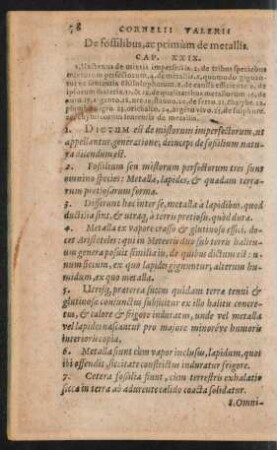 78 CORNELII VALERII
De fossilibus, ac primùm de metallis.
CAP. XXIX.
1. DICTUM est de mistorum imperfectorum, ut
appellantur, generatione, deinceps de fossilium natu
ra dicendum est.
2. Fossilium seu mistorum perfectorum tres sunt
omnino species: Metalla, lapides, & quædam terra-
rum pretiosarum forma.
3. Differunt hæc inter se, metalla à lapidibus, quod
ductilia sint, & utraq, à terris pretiosis, quòd dura.
4. Metalla ex vapore crasso & glutinoso effici, do-
cet Aristoteles: qui in Meteoris duo sub terris halituum
genera posuit similia iis, de quibus dictum est: u-
num siccum, ex quo lapides gignuntur, alterum hu-
midum, ex quo metalla.
5. Utrisq, præterea succus quidam terra tenui &
glutinosa conjunctus subjicitur ex illo halitu concre-
tus, & calore & frigore induratus, unde vel metalla
vel lapides nascantur pro majore minoréve humoris
interioris copia.
6. Metalla fiunt cùm vapor inclusus, lapidum, quos
ibi offendit, siccitate constrictus induratur frigore.
7. Cetera fossilia fiunt, cùm terrestris exhalatio
sicca in terra ab adurente calido coacta solidatur.
8. Omni-